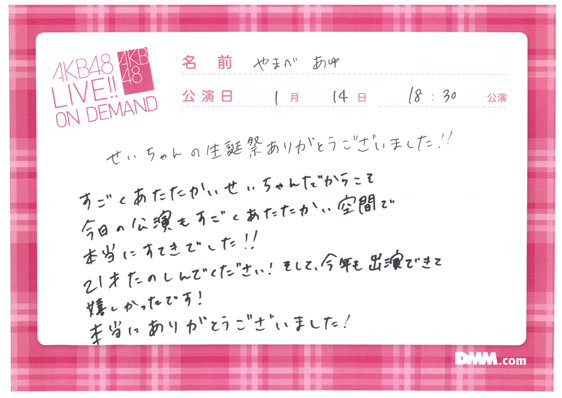 AKB48
LIVE!!
ON DEMAND
AKB
48
名前 やまべ あゆ
公演日 1月 14日 18:30 公演
せいちゃんの生誕祭ありがとうございました!!
すごくあたたかいせいちゃんだからこそ
今日の公演もすごくあたたかい空間で
本当にすてきでした!!
21才たのしんでください!そして、今年も出演できて
嬉しかったです!
本当にありがとうございました!
DMM.com